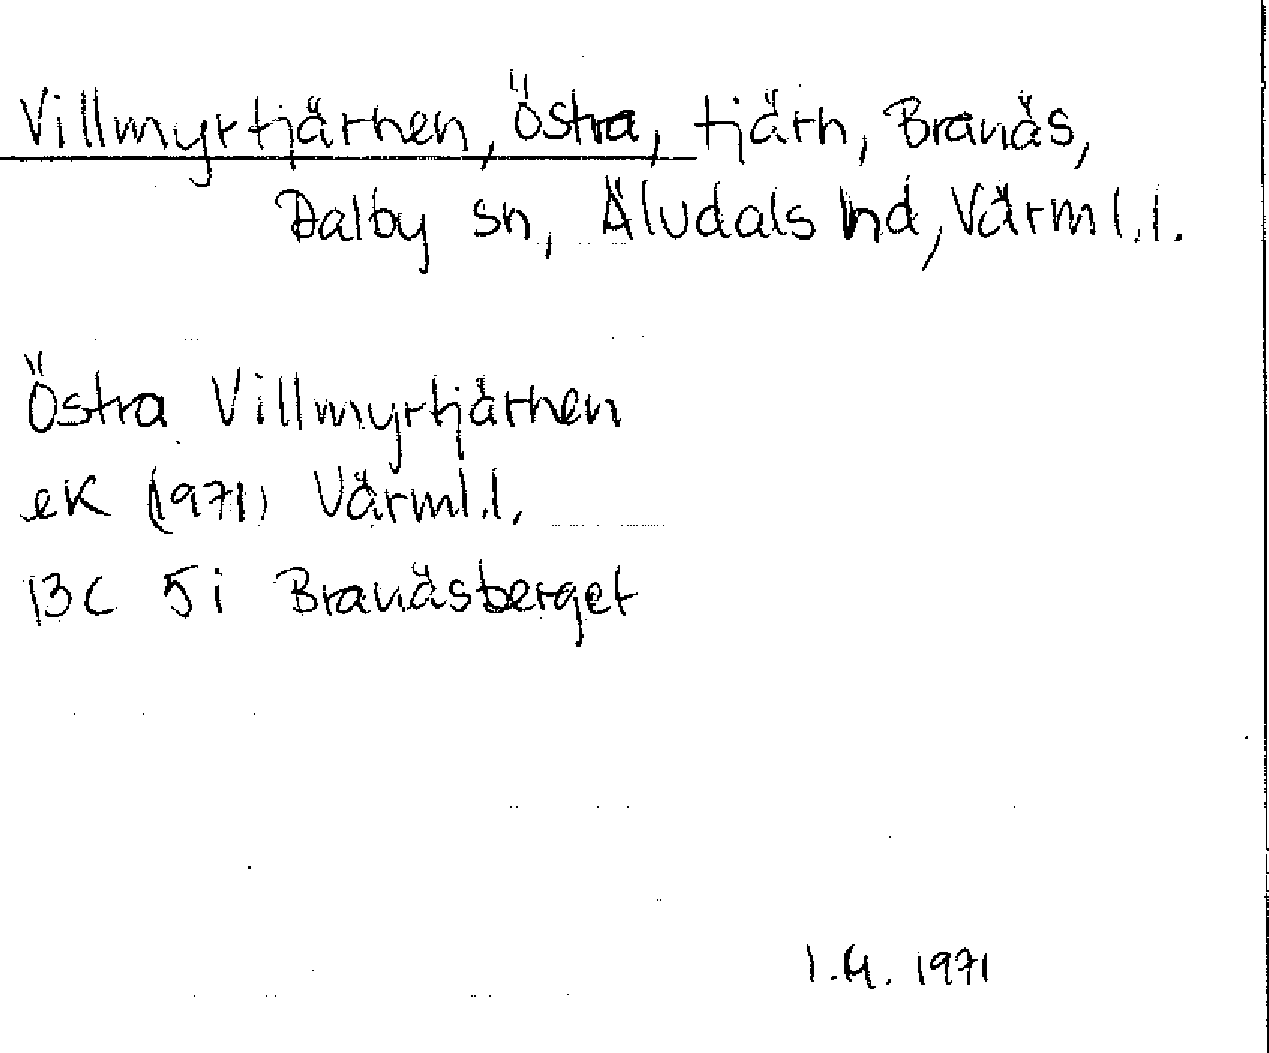 Villmyrtjärnen, Östra, tjärn, Branäs,
Dalby sn, Älvdals hd, Värml.l.
Östra Villmyrtjärnen
ek (1971) Värml.l.
13C 5i Branäsberget
1.4. 1971